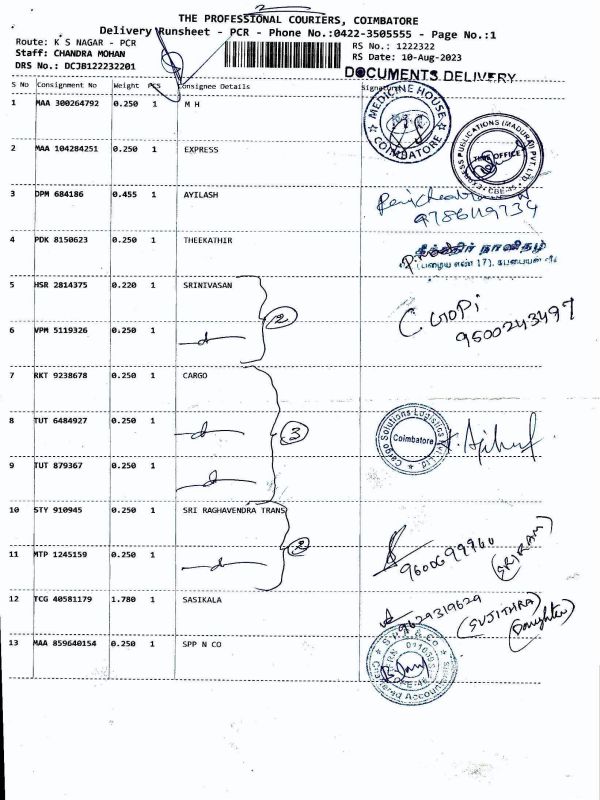 THE PROFESSIONAL COURIERS, COIMBATORE
Delivery Runsheet - PCR - Phone No.:0422-3505555 - Page No.:1
Route: K S NAGAR - PCR
Staff: CHANDRA MOHAN
DRS No.: DCJB122232201
RS No.: 1222322
RS Date: 10-Aug-2023
DOCUMENTS DELIVERY
S No Consignment No Weight PCS Consignee Details Signature
1 MAA 300264792 0.250 1 M H
MEDICINE HOUSE
COIMBATORE
2 MAA 104284251 0.250 1 EXPRESS
EXPRESS PUBLICATIONS (MADURAI) PVT. LTD.
TIME OFFICE
CBE-45
3 DPM 684186 0.455 1 AYILASH
4 PDK 8150623 0.250 1 THEEKATHIR
தீக்கதிர் நாளிதழ்
(பழைய எண் 17),
5 HSR 2814375 0.220 1 SRINIVASAN
2
C GOPI
9500243497
6 VPM 5119326 0.250 1
7 RKT 9238678 0.250 1 CARGO
8 TUT 6484927 0.250 1
3
Cargo Solutions Logistics Pvt Ltd
Coimbatore
9 TUT 879367 0.250 1
10 STY 910945 0.250 1 SRI RAGHAVENDRA TRANS
11 MTP 1245159 0.250 1
9600699960
(SRIRAM)
12 TCG 40581179 1.780 1 SASIKALA
9629319629
(SUJITHRA)
(Daughter)
13 MAA 859640154 0.250 1 SPP N CO
S.P.P & Co.
Chartered Accountants